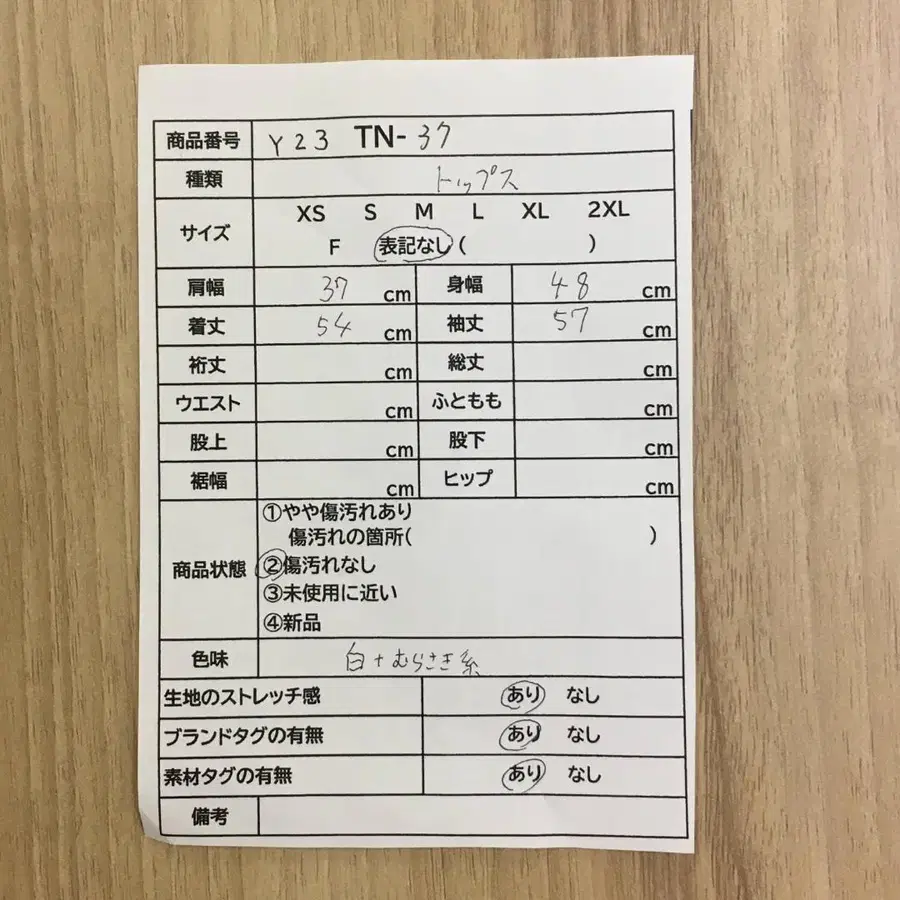 商品番号 Y23 TN-37
種類 トップス
サイズ XS S M L XL 2XL
F 表記なし ( )
肩幅 37 cm 身幅 48 cm
着丈 54 cm 袖丈 57 cm
裄丈 cm 総丈 cm
ウエスト cm ふともも cm
股上 cm 股下 cm
裾幅 cm ヒップ cm
商品状態 ①やや傷汚れあり
傷汚れの箇所( )
②傷汚れなし
③未使用に近い
④新品
色味 白+むらさき系
生地のストレッチ感 あり なし
ブランドタグの有無 あり なし
素材タグの有無 あり なし
備考